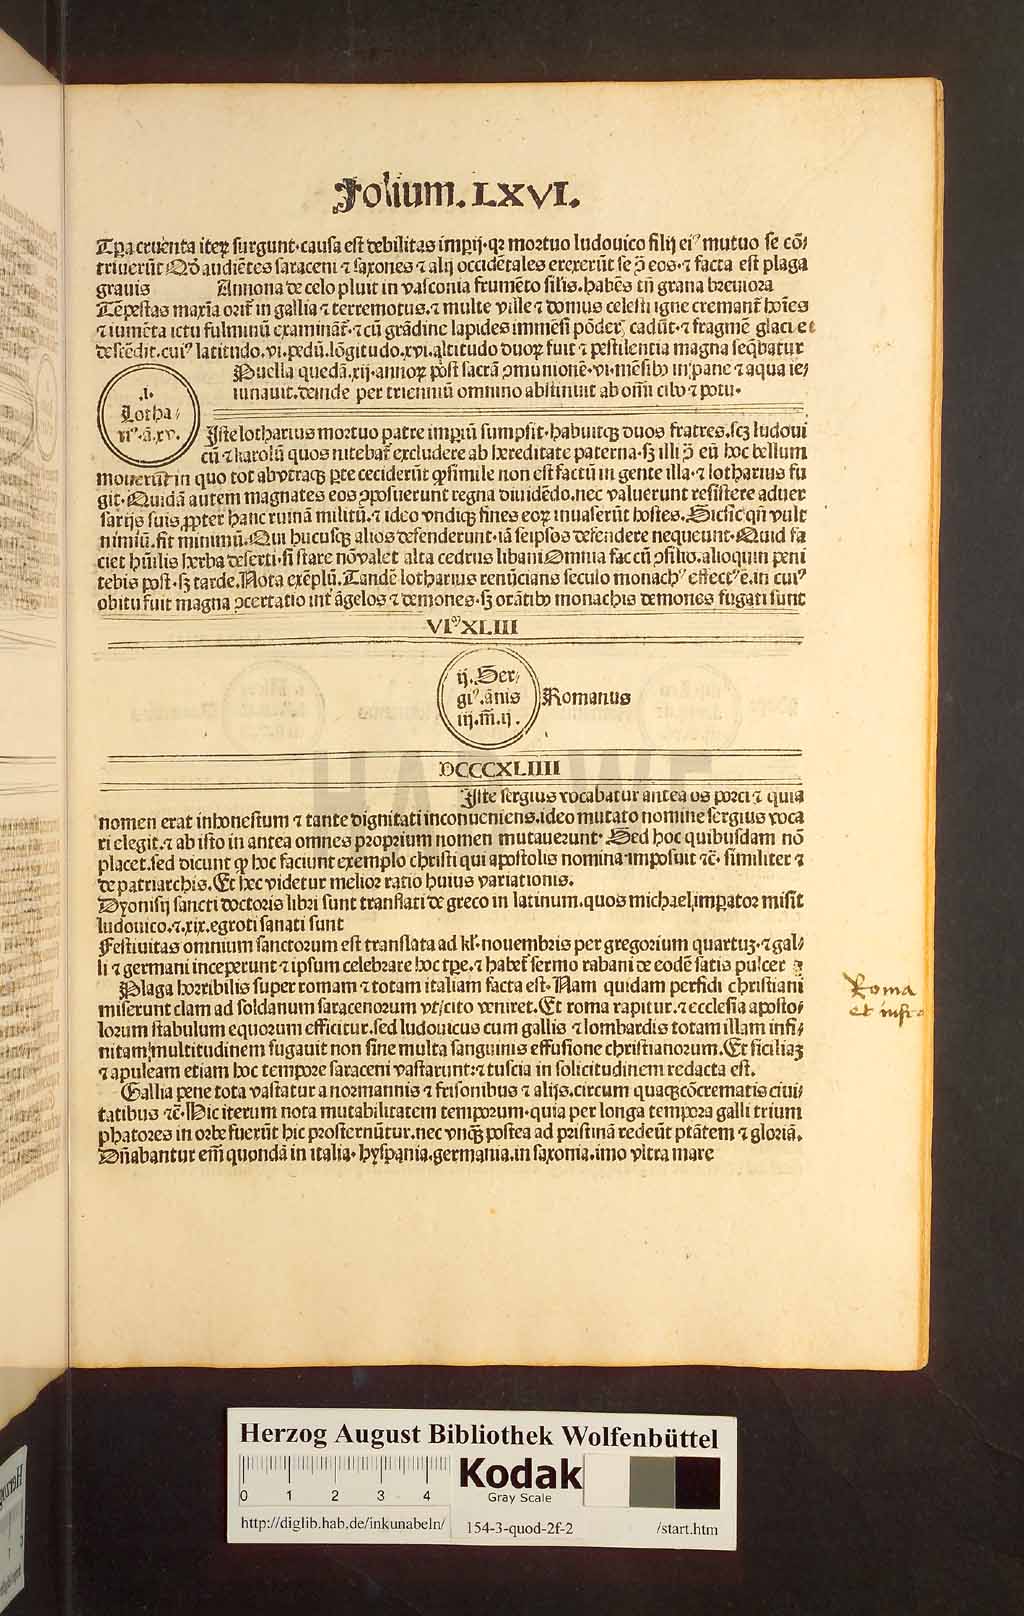 Folium. LXVI.
Tꝑa cruenta iteꝝ surgunt· causa est debilitas imꝑij· qꝛ mortuo ludouico filij eiꝰ mutuo se cō⸗
triuerūt Qd̓ audiētes saraceni ⁊ saxones ⁊ alij occidētales erexerūt se ꝯ̄ eos· ⁊ facta est plaga
grauis Annona de celo pluit in vasconia frumēto silis. habēs tn̄ grana breuiora
Tēpestas maxīa orit᷑ in gallia ⁊ terremotus. ⁊ multe ville ⁊ domus celesti igne cremant᷑ hoīes
⁊ iumēta ictu fulminū examināt᷑· ⁊ cū grādine lapides immēsi pōder᷑ cadūt· ⁊ fragmē glaciei
descēdit. cuiꝰ latitudo. vi. pedū. lōgitudo. xvi. altitudo duoꝝ fuit ⁊ pestilentia magna seq̄batur
Puella quedā. xij· annoꝝ post sacrā ꝯmunionē· vi· mēsibꝫ in pane ⁊ aqua ie⸗
iunauit. deinde per trienniū omnino abstinuit ab om̄i cibo ⁊ potu·
.I.
Lotha⸗
riꝰ· ā. xv.
Iste lotharius mortuo patre imꝑiū sumpsit· habuitqꝫ duos fratres. scꝫ ludoui
cū ⁊ karolū quos nitebat᷑ excludere ab hereditate paterna· sꝫ illi ꝯ̄ eū hoc bellum
mouerūt in quo tot ab vtraqꝫ ꝑte ceciderūt ꝙ simile non est factū in gente illa· ⁊ lotharius fu
git· Quidā autem magnates eos ꝯposuerunt regna diuidēdo. nec valuerunt resistere aduer
sarijs suis ꝓpter hanc ruinā militū. ⁊ ideo vndiqꝫ fines eoꝝ inuaserūt hostes. Sicsic qn̄ vult
nimiū. fit minimū. Qui hucusqꝫ alios defenderunt· iā seipsos defendere nequeunt· Quid fa
ciet hūilis herba deserti· si stare nō valet alta cedrus libani Omnia fac cū ꝯsilio. alioquin peni
tebis post· sꝫ tarde. Nota exēplū. Tandē lotharius renūcians seculo monachꝰ effectꝰ ē. in cuiꝰ
obitu fuit magna ꝯcertatio int᷑ āgelos ⁊ demones· sꝫ orātibꝫ monachis demones fugati sunt
VIᵐXLIII
ij. Ser⸗
giꝰ. ānis
iij. m̄. ij.
Romanus
DCCCXLIIII
Iste sergius vocabatur antea os porci ⁊ quia
nomen erat inhonestum ⁊ tante dignitati inconueniens. ideo mutato nomine sergius voca
ri elegit. ⁊ ab isto in antea omnes proprium nomen mutauerunt· Sed hoc quibusdam nō
placet. sed dicunt ꝙ hoc faciunt exemplo christi qui apostolis nomina imposuit ⁊c̄· similiter ⁊
de patriarchis. Et hec videtur melior ratio huius variationis.
Dyonisij sancti doctoris libri sunt translati de greco in latinum. quos michael imꝑator misit
ludouico. ⁊. xix. egroti sanati sunt
Festiuitas omnium sanctorum est translata ad kl᷑· nouembris per gregorium quartuꝫ· ⁊ gal⸗
li ⁊ germani inceperunt ⁊ ipsum celebrare hoc tꝑe. ⁊ habet᷑ sermo rabani de eodē satis pulcer
Plaga horribilis super romam ⁊ totam italiam facta est· Nam quidam perfidi christiani
miserunt clam ad soldanum saracenorum vt cito veniret. Et roma rapitur. ⁊ ecclesia aposto⸗
lorum stabulum equorum efficitur. sed ludouicus cum gallis ⁊ lombardis totam illam infi⸗
nitam multitudinem fugauit non sine multa sanguinis effusione christianorum. Et siciliaꝫ
⁊ apuleam etiam hoc tempore saraceni vastarunt: ⁊ tuscia in solicitudinem redacta est.
Gallia pene tota vastatur a normannis ⁊ frisonibus ⁊ alijs. circum quaqꝫ cōcrematis ciui⸗
tatibus ⁊c̄· Hic iterum nota mutabilitatem temporum· quia per longa tempora galli trium
phatores in orbe fuerūt hic prosternūtur. nec vnqꝫ̄ postea ad pristinā redeūt ptātem ⁊ gloriā.
Dn̄abantur em̄ quondā in italia· hyspania. germania. in saxonia. imo vltra mare
Roma
et
Herzog August Bibliothek Wolfenbüttel
0 1 2 3 4
Kodak
Gray Scale
http://diglib.hab.de/inkunabeln/
154-3-quod-2f-2
/start.htm